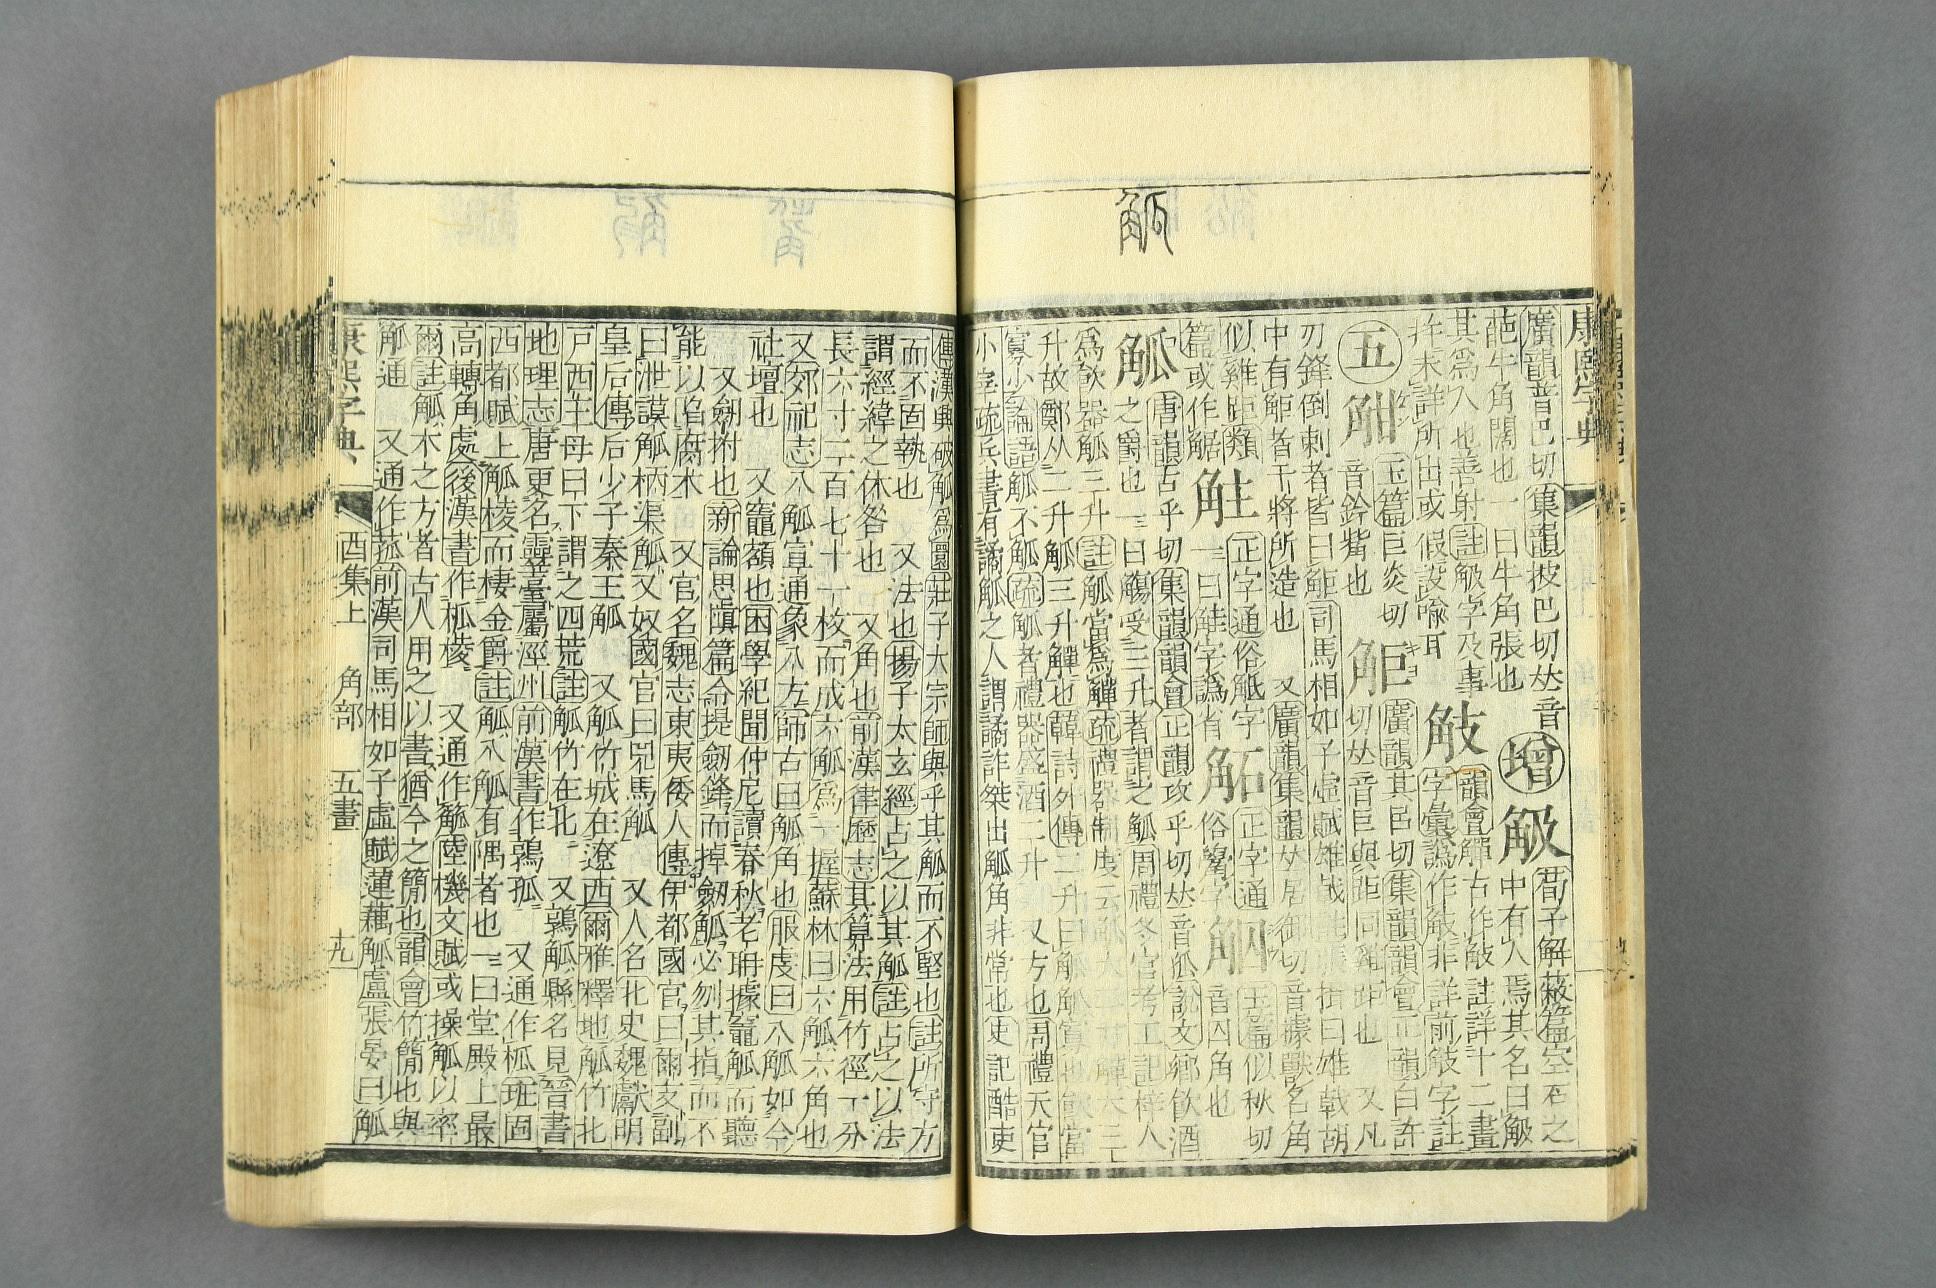 觚
康熙字典
廣韻普巴切集韻披巴切𠀤音
葩牛角闊也一曰牛角張也
增
觙
荀子解蔽篇空石之
中有人焉其名曰觙
其爲人也善射註觙字及事
𠀤未詳所出或假設喻耳
韻會觶古作註詳十二畫
字彙譌作非詳前字註
五
玉篇巨炎切
音鈐觜也
廣韻其呂切集韻韻會正韻臼許
切𠀤音巨與距同雞距也 又凡
刃鋒倒刺者皆曰司馬相如子虛賦雄戟註張揖曰雄戟胡
中有者干將所造也 又廣韻集韻𠀤居御切音據獸名角
似雞距類
篇或作
正字通俗觝字
一曰觟字譌省
正字通
俗觷字
玉篇似秋切
音囚角也
觚
唐韻古乎切集韻韻會正韻攻乎切𠀤音孤說文鄉飲酒
之爵也一曰觴受三升者謂之觚周禮冬官考工記梓人
爲飮器觚三升註觚當爲觶疏禮器制度云觚大二升觶大三
升故鄭从二升觚三升觶也韓詩外傳二升曰觚觚寡也飮當
寡少論語觚不觚疏觚者禮器盛酒二升 又方也周禮天官
小宰疏兵書有譎觚之人謂譎詐桀出觚角非常也史記酷吏
傳漢興破觚爲圜莊子大宗師與乎其觚而不堅也註所守方
而不固執也 又法也揚子太玄經占之以其觚註占之以法
謂經緯之休咎也 又角也前漢律歷志其算法用竹徑一分
長六寸二百七十一枚而成六觚爲一握蘇林曰六觚六角也
又郊祀志八觚宣通象八方師古曰觚角也服虔曰八觚如今
社壇也 又竈額也困學紀聞仲尼讀春秋老聃據竈觚而聽
又劒拊也新論思愼篇命提劒鋒而掉劒觚必刎其指而不
能以陷腐木 又官名魏志東夷倭人傳伊都國官曰爾支副
曰泄謨觚柄渠觚又奴國官曰兕馬觚 又人名北史魏獻明
皇后傳后少子秦王觚 又觚竹城在遼西爾雅釋地觚竹北
戸西王母日下謂之四荒註觚竹在北 又鶉觚縣名見晉書
地理志唐更名靈臺屬涇州前漢書作鶉孤 又通作柧班固
西都賦上觚棱而棲金爵註觚八觚有隅者也一曰堂殿上最
高轉角處後漢書作柧棱 又通作觚陸機文賦或操觚以率
爾註觚木之方者古人用之以書猶今之簡也韻會竹簡也與
觚通 又通作菰前漢司馬相如子虛賦蓮藕觚盧張晏曰觚
康熙字典
酉集上 角部 五畫
十九